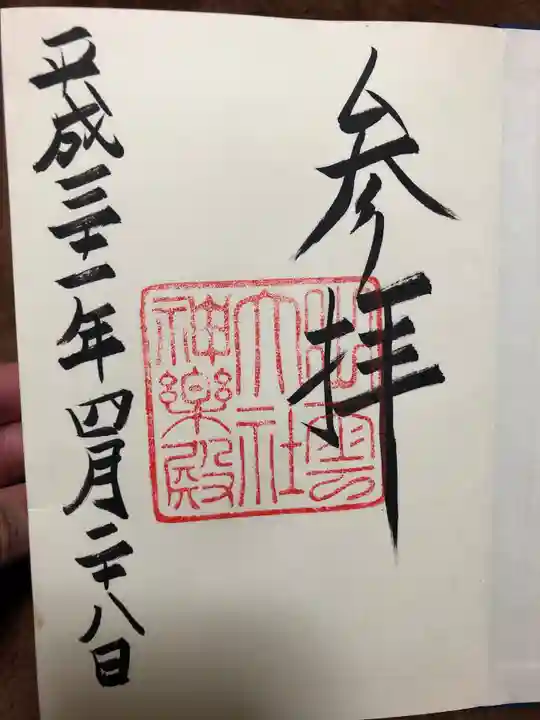 参拝
出雲
大社
神樂殿
平成三十一年四月二十八日